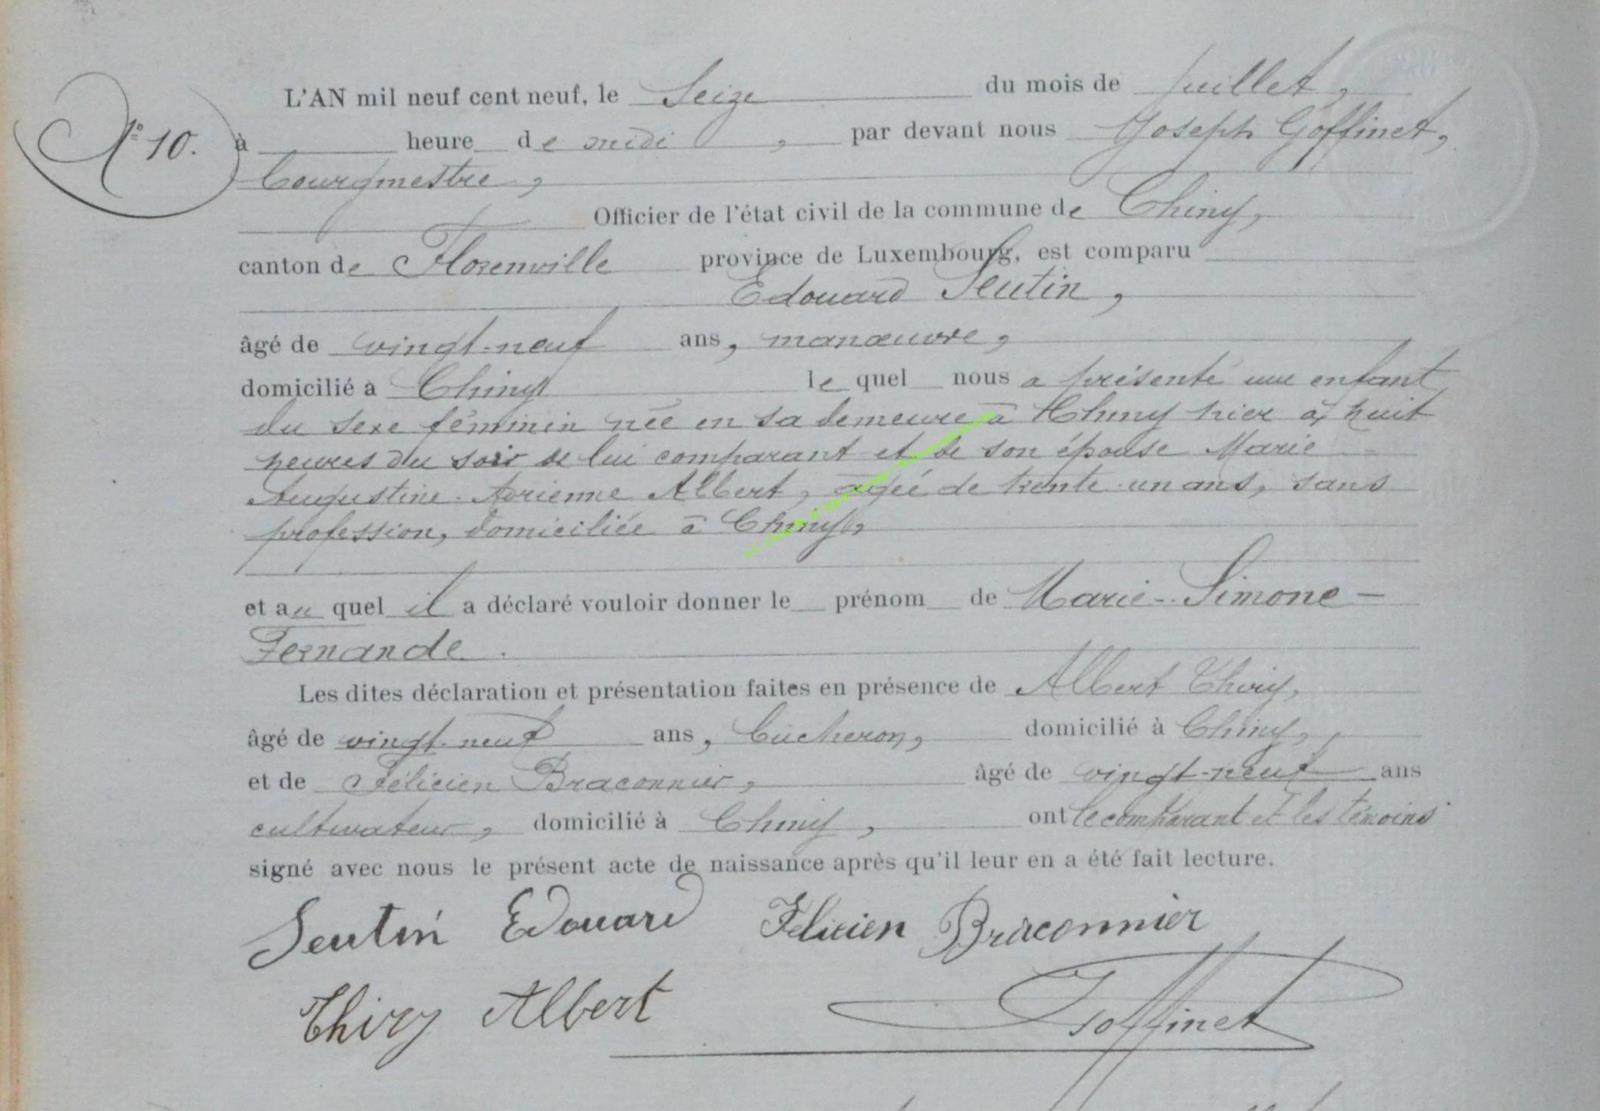 L'AN mil neuf cent neuf, le Seize du mois de juillet,
N° 10. à heure de midi, par devant nous Joseph Goffinet,
bourgmestre,
Officier de l'état civil de la commune de Chiny,
canton de Florenville province de Luxembourg, est comparu
Edouard Seutin,
âgé de vingt-neuf ans, manœuvre,
domicilié à Chiny lequel nous a présenté une enfant
du sexe féminin née en sa demeure à Chiny hier à huit
heures du soir de lui comparant et de son épouse Marie
Augustine Adrienne Albert, âgée de trente-un ans, sans
profession, domiciliée à Chiny,
et au quel il a déclaré vouloir donner le prénom de Marie-Simone-
Fernande.
Les dites déclaration et présentation faites en présence de Albert Thiry,
âgé de vingt-neuf ans, bûcheron, domicilié à Chiny,
et de Félicien Braconnier, âgé de vingt-neuf ans
cultivateur, domicilié à Chiny, ont le comparant et les témoins
signé avec nous le présent acte de naissance après qu'il leur en a été fait lecture.
Seutin Edouard Félicien Braconnier
Thiry Albert Goffinet